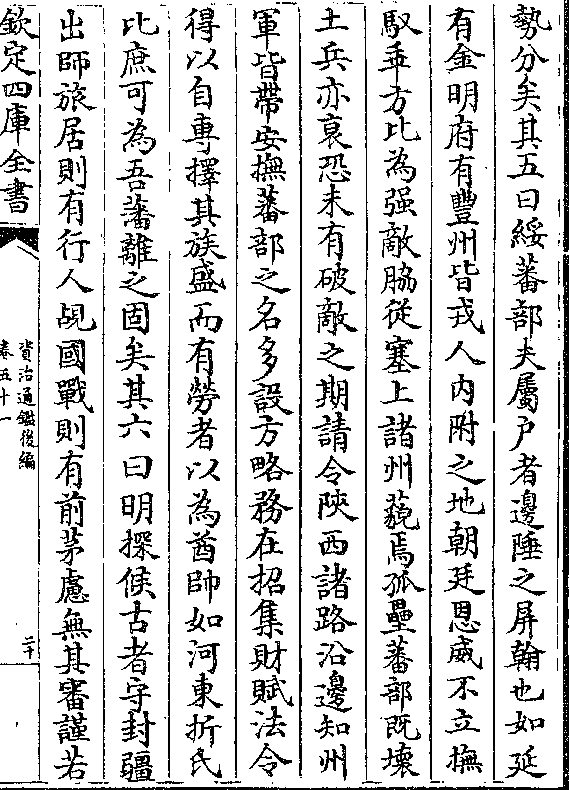 勢分矣其五曰綏蕃部夫屬户者邊陲之屏翰也如延
有金明府有豐州皆戎人内附之地朝廷恩威不立撫
馭乖方比為强敵脇從塞上諸州藐焉孤壘蕃部既壞
土兵亦衰恐未有破敵之期請令陜西諸路沿邊知州
軍皆帶安撫蕃部之名多設方略務在招集財賦法令
得以自專擇其族盛而有勞者以為酋帥如河東折氏
比庶可為吾藩離之固矣其六曰明探候古者守封疆
出師旅居則有行人覘國戰則有前茅慮無其審謹若
欽定四庫全書
資治通鑑後編
卷五十一
二十